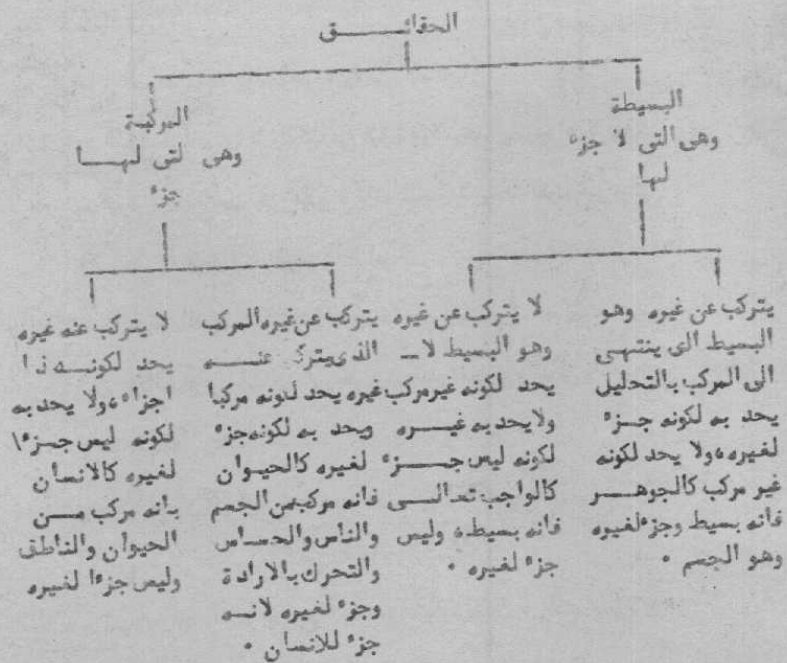 الحقائق
البسيطة
وهى التى لا جزء
لها
المركبة
وهى لتى لها
جزء
يتركب عن غيره وهو
البسيط الى ينتهى
الى المركب بالتحليل
يحد به لكونه جزء
لغيره، ولا يحد لكونه
غير مركب كالجوهر
فانه بسيط وجزء لغيره
وهو الجسم .
لا يتركب عن غيره
وهو البسيط لا
يحد لكونه غير مركب
ولا يحد به غيره
لكونه ليس جزء
كالواجب تعالى
فانه بسيط، وليس
جزء لغيره .
يتركب عن غيره المركب
الذى يتركب عنه
غيره يحد لكونه مركبا
ويحد به لكونه جزء
لغيره كالحيوان
فانه مركب من الجسم
والناس والحساس
والتحرك بالارادة
وجزء لغيره لانه
جزء للانسان .
لا يتركب عنه غيره
يحد لكونه ذا
اجزاء، ولا يحد به
لكونه ليس جزءا
لغيره كالانسان
بانه مركب من
الحيوان والناطق
وليس جزءا لغيره